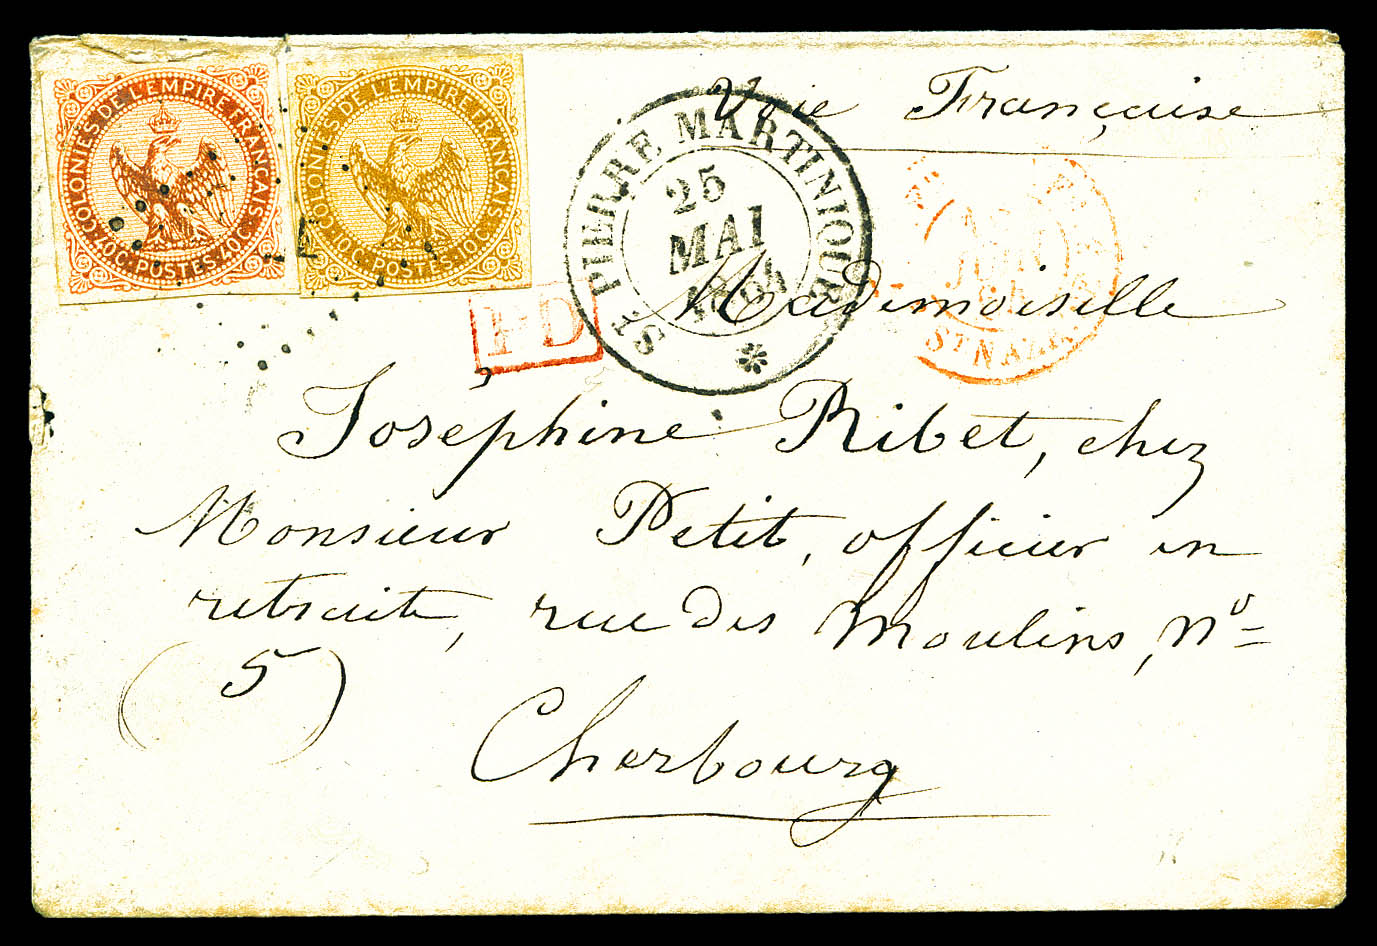 COLONIES DE L'EMPIRE FRANÇAIS
40C. POSTES. 40C.
COLONIES DE L'EMPIRE FRANÇAIS
10C. POSTES. 10C.
Voie Française
ST PIERRE MARTINIQUE
25
MAI
1864
JUIN
ST NAZ
PD
Mademoiselle
Joséphine Ribet, chez
Monsieur Petit, officier en
retraite, rue des Moulins, No
(5)
Cherbourg